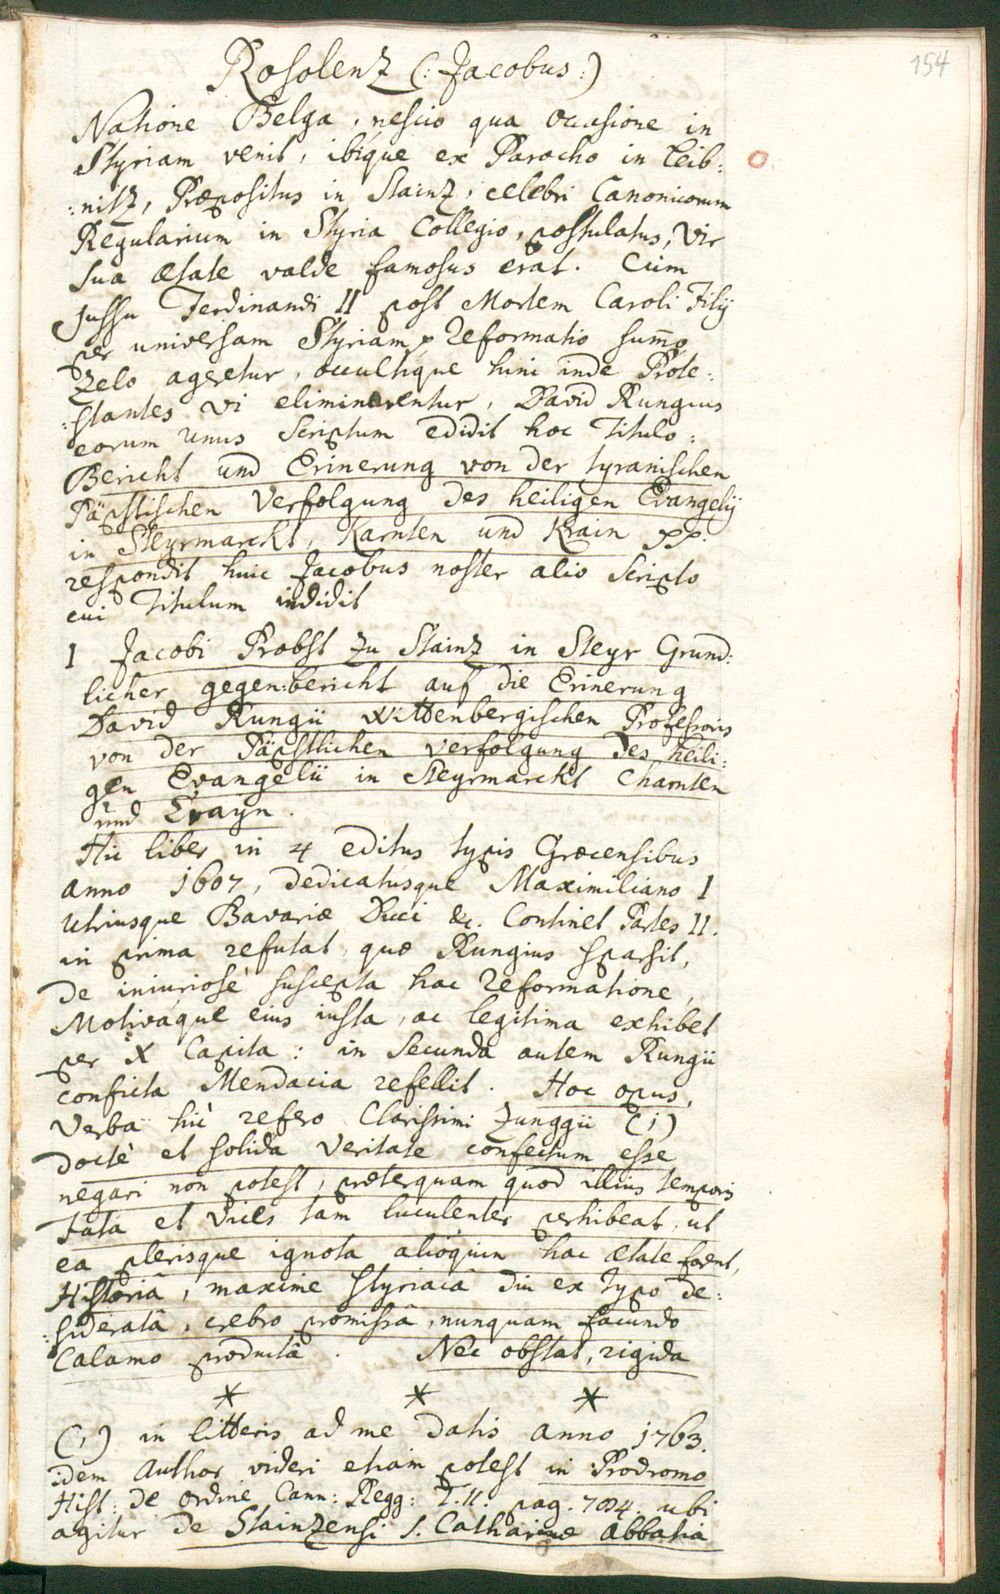 154
Rosolenz (: Jacobus :)
Natione Belga, nescio qua occasione in
Styriam venit, ibique ex Parocho in Leib:
:nitz, Præpositus in Stainz, celebri Canonicorum
Regularium in Styria Collegio, postulatus, Vir
sua ætate valde famosus erat. Cùm
Jussu Ferdinandi II post Mortem Caroli Filij
per universam Styriam Reformatio sum̄o
Zelo ageretur, occultique hinc inde Prote:
:stantes vi eliminarentur, David Rungius
eorum unus scriptum edidit hoc Titulo:
Bericht und Erinerung von der tyranischen
Päpstischen Verfolgung des heiligen Evangelij
in Steyrmarckt, Karnten und Krain pp:
respondit huic Jacobus noster alio scripto
cui Titulum indidit
1 Jacobi Probst zu Stainz in Steyr Grund:
licher gegen:bericht auf die Erinerung
David Rungii Wittenbergischen Professoris
von der Päpstlichen verfolgung des heili:
gen Evangelii in Steyrmarckt Charnten
und Crayn.
Hic liber in 4 editus typis Græcensibus
anno 1607, Dedicatusque Maximiliano I
utriusque Bavariæ Duci &c. Continet Partes II.
in prima refutat, quæ Rungius sparsit,
de iniuriosè suscepta hac Reformatione,
Motivaque eius iusta, ac legitima exhibet
per X Capita: in secunda autem Rungii
conficta Mendacia refellit. Hoc opus,
verba hìc refero Clarissimi Zunggii (1)
doctè et solida veritate confectum esse
negari non potest, præterquam quod illius temporis
fata et vices tam luculenter perhibeat, ut
ea plerisque ignota alióquin hac ætate forent,
Historiâ, maxime styriacâ diu ex typo de:
:sideratâ, crebro promissâ, nunquam facundo
Calamo productâ. Nec obstat, rigida
* * *
(1) in litteris ad me datis anno 1763.
idem Author videri etiam potest in Prodromo
Hist: de ordine Cann: Regg: T. II. pag. 704. ubi
agitur de Stainzensi S. Catharinæ Abbatia